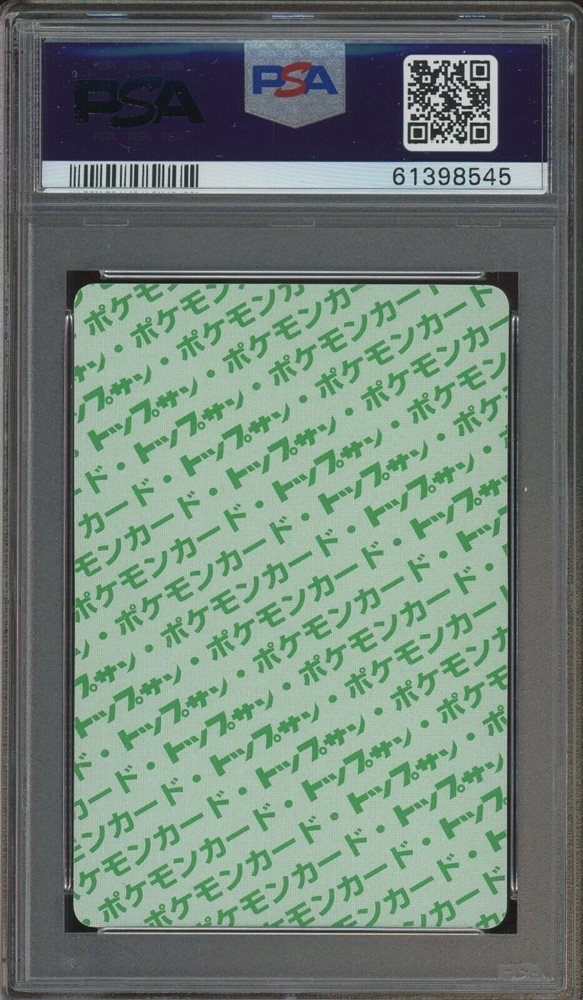 PSA
PSA
61398545
ポケモ
プサン・ポケモンカ
トップサン・ポケモンカード
ド・トップサン・ポケモンカード
カード・トップサン・ポケモン
モンカード・トップサン・ポケモ
ポケモンカード・トップサン・ポ
・ポケモンカード・トップサン・
ン・ポケモンカード・トップサン
プサン・ポケモンカード・トッ
トップサン・ポケモンカード・
・トップサン・ポケモンカード
ード・トップサン・ポケモンカ
ンカード・トップサン・ポケモ
ケモンカード・トップサン・ポ
ポケモンカード・トップサン
ポケモンカード・ト
PSA